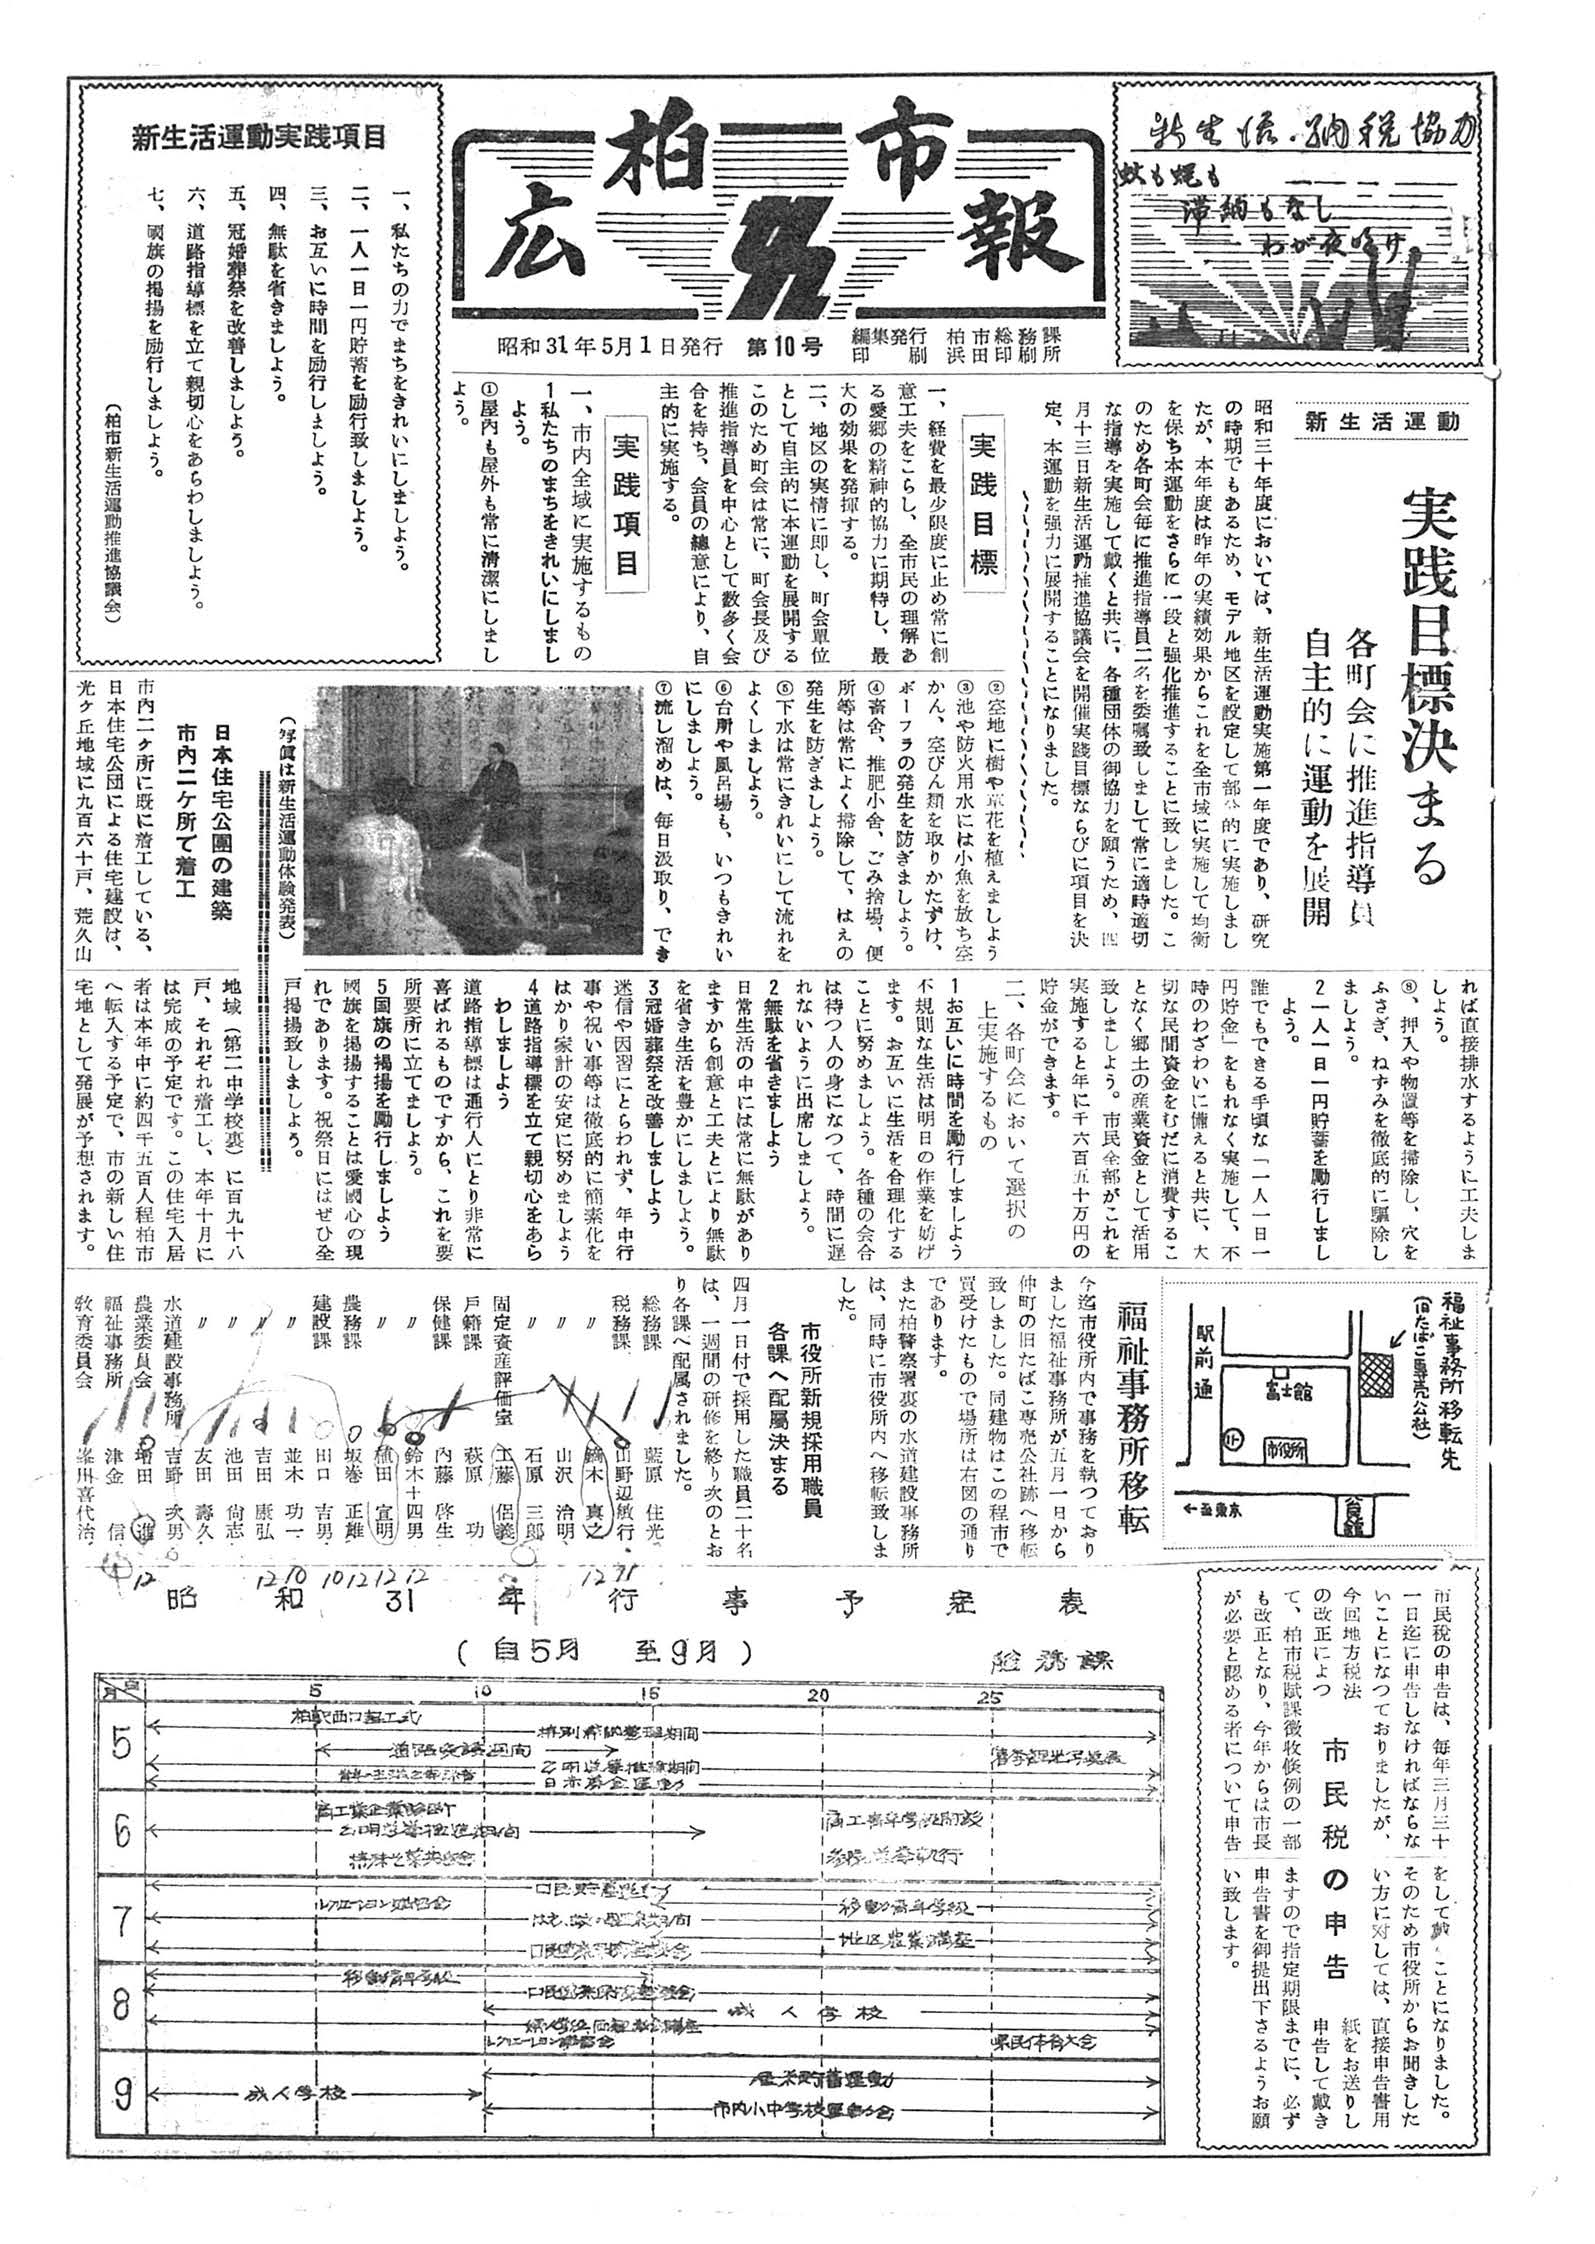 柏市
広報
昭和31年5月1日発行 第10号 編集発行 柏市総務課
印刷 浜田印刷所
新生活・納税協力
蚊も蝿も
滞納もなし
わが夜明け
新生活運動実践項目
一、私たちの力でまちをきれいにしましよう。
二、一人一日一円貯蓄を励行致しましよう。
三、お互いに時間を励行しましよう。
四、無駄を省きましよう。
五、冠婚葬祭を改善しましよう。
六、道路指導標を立て親切心をあらわしましよう。
七、國旗の掲揚を励行しましよう。
(柏市新生活運動推進協議会)
新生活運動
実践目標決まる
各町会に推進指導員
自主的に運動を展開
昭和三十年度においては、新生活運動実施第一年度であり、研究
の時期でもあるため、モデル地区を設定して部分的に実施しまし
たが、本年度は昨年の実績効果からこれを全市域に実施して均衡
を保ち本運動をさらに一段と強化推進することに致しました。こ
のため各町会毎に推進指導員二名を委嘱致しまして常に適時適切
な指導を実施して戴くと共に、各種団体の御協力を願うため、四
月十三日新生活運動推進協議会を開催実践目標ならびに項目を決
定、本運動を強力に展開することになりました。
実践目標
一、経費を最少限度に止め常に創
意工夫をこらし、全市民の理解あ
る愛郷の精神的協力に期待し、最
大の効果を発揮する。
二、地区の実情に即し、町会單位
として自主的に本運動を展開する
このため町会は常に、町会長及び
推進指導員を中心として数多く会
合を持ち、会員の總意により、自
主的に実施する。
実践項目
一、市内全域に実施するもの
1私たちのまちをきれいにしまし
よう。
①屋内も屋外も常に清潔にしまし
よう。
②空地に樹や草花を植えましよう
③池や防火用水には小魚を放ち空
かん、空びん類を取りかたずけ、
ボーフラの発生を防ぎましよう。
④畜舎、推肥小舎、ごみ捨場、便
所等は常によく掃除して、はえの
発生を防ぎましよう。
⑤下水は常にきれいにして流れを
よくしましよう。
⑥台所や風呂場も、いつもきれい
にしましよう。
⑦流し溜めは、毎日汲取り、でき
れば直接排水するように工夫しま
しよう。
⑧、押入や物置等を掃除し、穴を
ふさぎ、ねずみを徹底的に驅除し
ましよう。
2一人一日一円貯蓄を励行しまし
よう。
誰でもできる手頃な「一人一日一
円貯金」をもれなく実施して、不
時のわざわいに備えると共に、大
切な民間資金をむだに消費するこ
となく郷土の産業資金として活用
致しましよう。市民全部がこれを
実施すると年に千六百五十万円の
貯金ができます。
二、各町会において選択の
上実施するもの
1お互いに時間を励行しましよう
不規則な生活は明日の作業を妨げ
ます。お互いに生活を合理化する
ことに努めましよう。各種の会合
は待つ人の身になつて、時間に遅
れないように出席しましよう。
2無駄を省きましよう
日常生活の中には常に無駄があり
ますから創意と工夫とにより無駄
を省き生活を豊かにしましよう。
3冠婚葬祭を改善しましよう
迷信や因習にとらわれず、年中行
事や祝い事等は徹底的に簡素化を
はかり家計の安定に努めましよう
4道路指導標を立て親切心をあら
わしましよう
道路指導標は通行人にとり非常に
喜ばれるものですから、これを要
所要所に立てましよう。
5国旗の掲揚を勵行しましよう
國旗を掲揚することは愛國心の現
れであります。祝祭日にはぜひ全
戸掲揚致しましよう。
(写眞は新生活運動体験発表)
日本住宅公團の建築
市内二ケ所で着工
市内二ケ所に既に着工している、
日本住宅公団による住宅建設は、
光ケ丘地域に九百六十戸、荒久山
地域(第二中学校裏)に百九十八
戸、それぞれ着工し、本年十月に
は完成の予定です。この住宅入居
者は本年中に約四千五百人程柏市
へ転入する予定で、市の新しい住
宅地として発展が予想されます。
福祉事務所移転先
(旧たばこ専売公社)
駅前通
富士館
市役所
公会館
←至東京
福祉事務所移転
今迄市役所内で事務を執つており
ました福祉事務所が五月一日から
仲町の旧たばこ専売公社跡へ移転
致しました。同建物はこの程市で
買受けたもので場所は右図の通り
であります。
また柏警察署裏の水道建設事務所
は、同時に市役所内へ移転致しま
した。
市役所新規採用職員
各課へ配属決まる
四月一日付で採用した職員二十名
は、一週間の研修を終り次のとお
り各課へ配属されました。
総務課 藍原 住光
税務課 山野辺敏行
〃 鏑木 真之
〃 山沢 治明
〃 石原 三郎
固定資産評価室 工藤 侶義
戸籍課 萩原 功
保健課 内藤 啓生
〃 鈴木十四男
〃 植田 宣明
農務課 坂巻 正雄
建設課 田口 吉男
〃 並木 功一
〃 吉田 康弘
〃 池田 尚志
〃 友田 壽久
水道建設事務所 吉野 次男
農業委員会 増田 進
福祉事務所 津金 信
教育委員会 峯川喜代治
12 12 10 10 12 12 12 12 31
市民税の申告
市民税の申告は、毎年三月三十
一日迄に申告しなければならな
いことになつておりましたが、
今回地方税法
の改正によつ
て、柏市税賦課徴收條例の一部
も改正となり、今年からは市長
が必要と認める者について申告
をして戴くことになりました。
そのため市役所からお聞きした
い方に対しては、直接申告書用
紙をお送りし
申告して戴き
ますので指定期限までに、必ず
申告書を御提出下さるようお願
い致します。
昭和31年行事予定表
(自5月 至9月)
総務課
月 日 5 10 15 20 25
5
柏駅西口起工式
特別滞納整理期間
道路愛護週間
公明選挙推進期間
日赤募金運動
6
商工業企業診断
公明選挙推進期間
商工青年学級開設
参院選挙執行
7
レクリエーション講習会
移動青年学級
地区農業講座
8
移動青年学級
成人学校
レクリエーション講習会
県民体育大会
9
成人学校
産米貯蓄運動
市内小中学校運動会